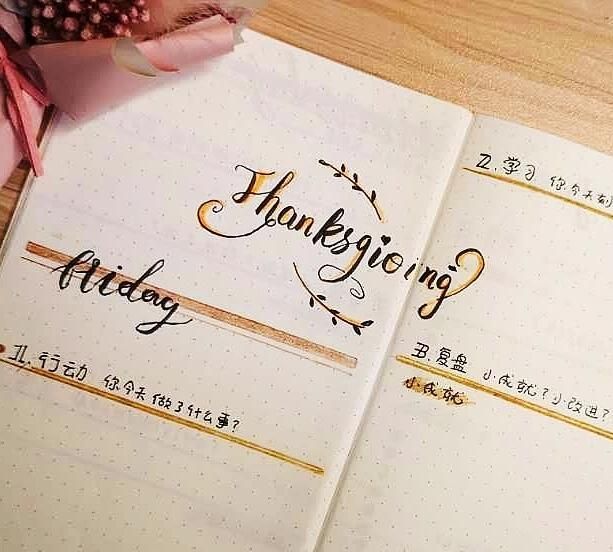 Thanksgiving
friday
1. 行动 你今天做了什么事?
2. 学习 你今天
3. 复盘 小成就?小改进?
小成就